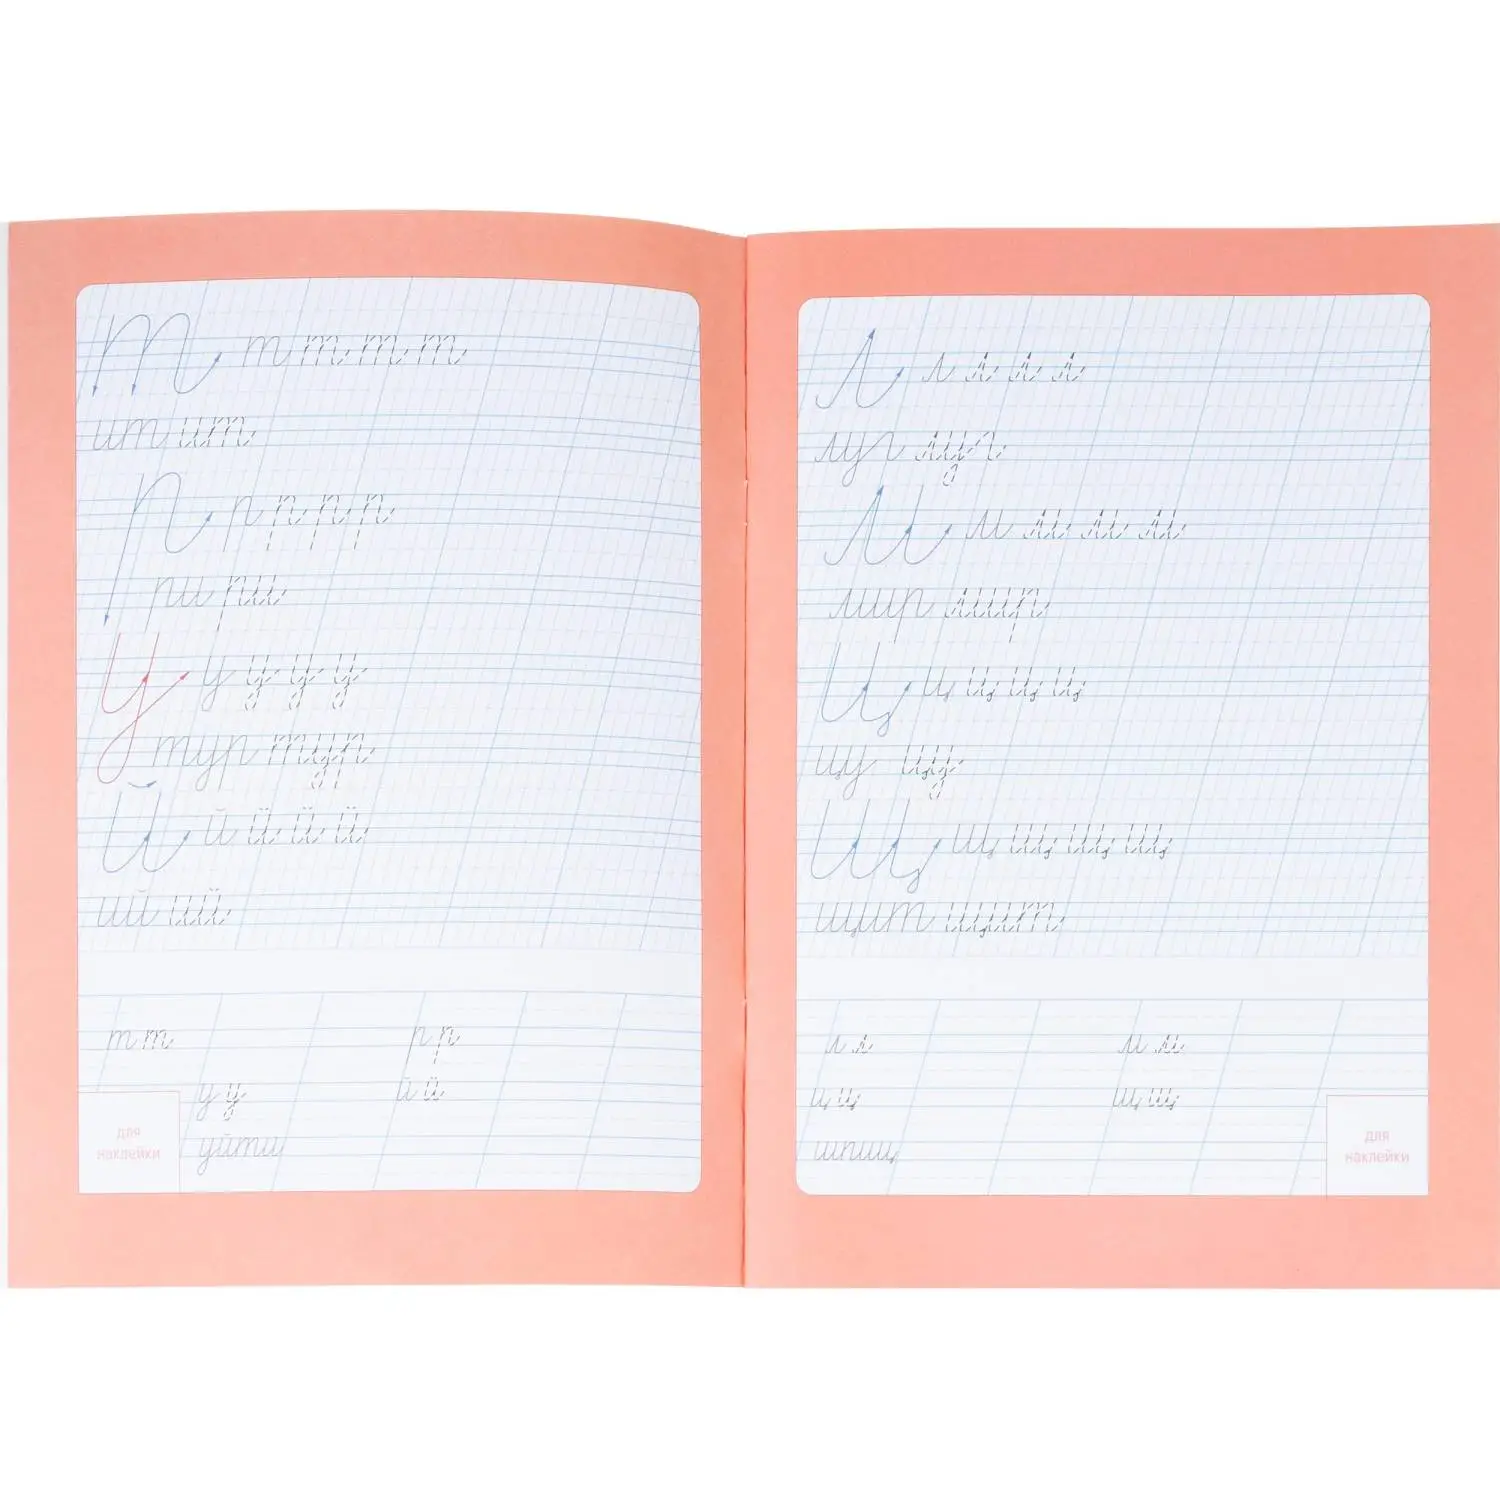 т т т т т
ит ит
р р р р р
ри ри
у у у у у
тур тур
й й й й й
ий ий
т т р р
у у й й
уйти
для
наклейки
л л л л л
луг луг
м м м м м
мир мир
ц ц ц ц ц
цу цу
щ щ щ щ щ
щит щит
л л м м
ц ц щ щ
шпиц
для
наклейки